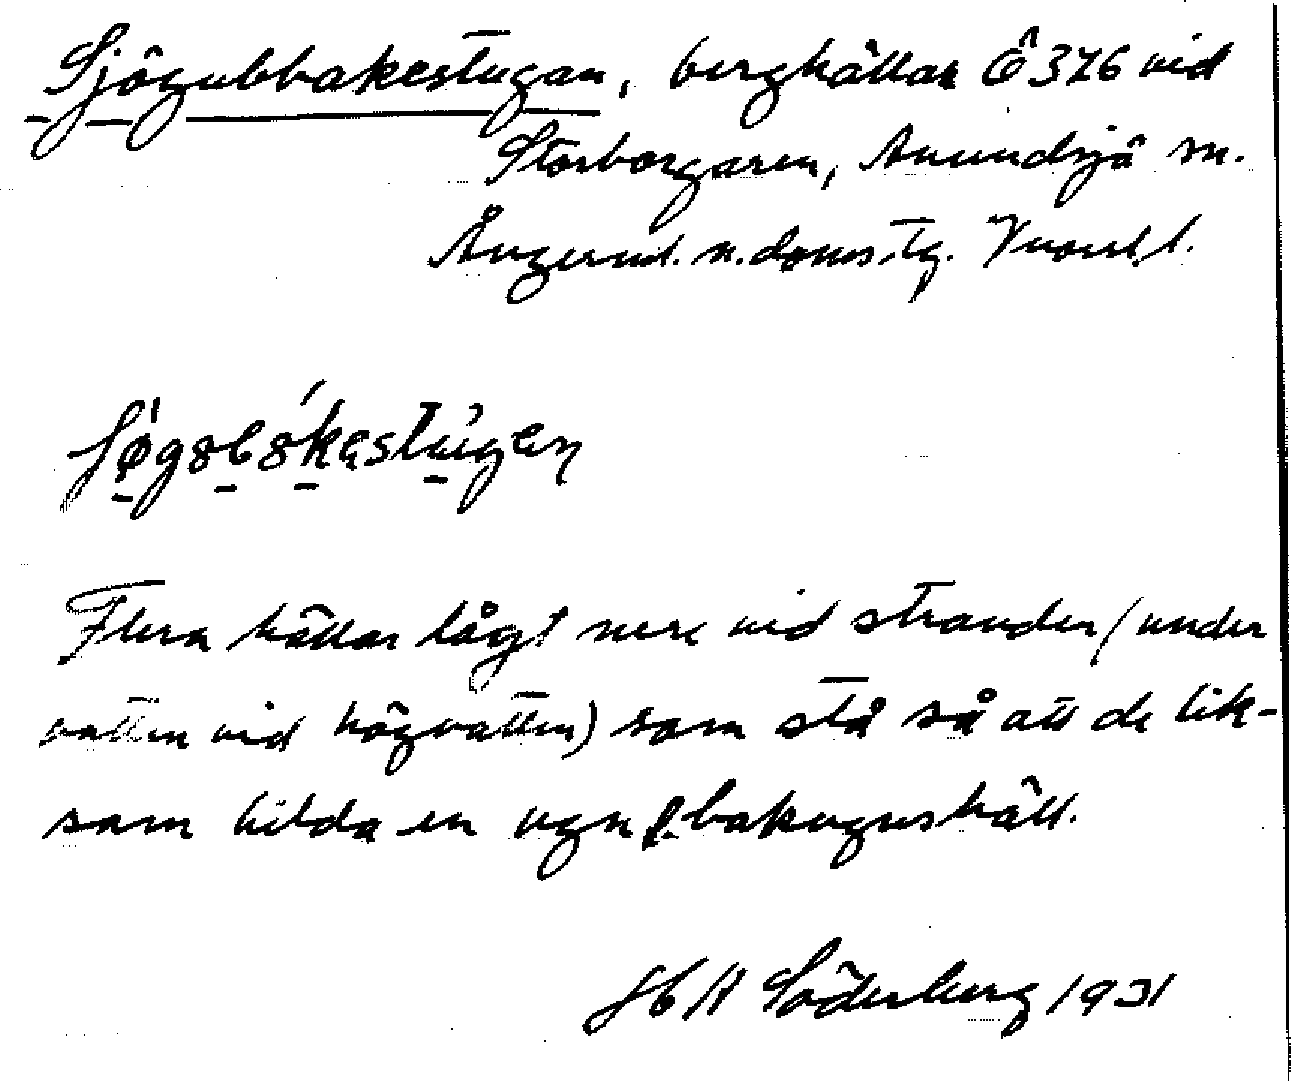 Sjögubbakestugan, berghällar Ö 376 vid
Storborgaren, Anundsjö sn.
Ångerml. n. doms.tg. Vnorrl. l.
Flera hällar lågt nere vid stranden (under
vatten vid högvatten) som stå så att de lik-
som bilda en ugn l. bakugnshäll.
H A Söderberg 1931